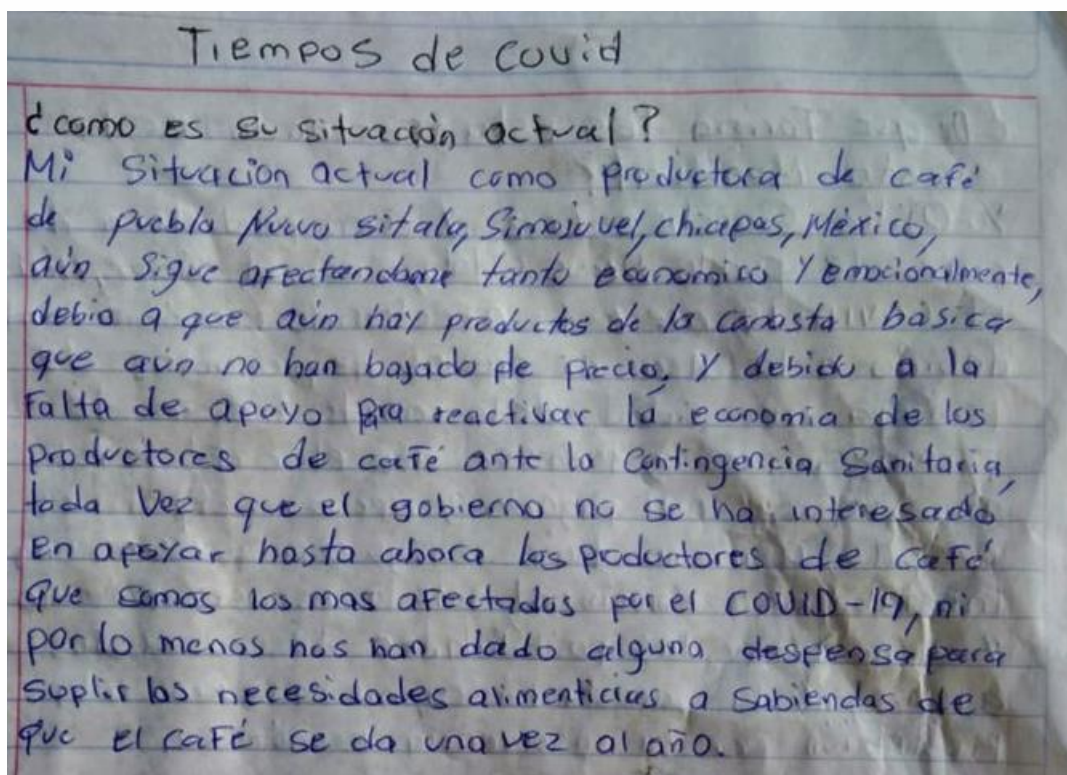 Tiempos de Covid
¿como es su situación actual?
Mi Situacion actual como productora de café
de pueblo Nuevo sitala, Simojovel, chiapas, México,
aún sigue afectandome tanto economico y emocionalmente,
debio a que aún hay productos de la canasta básica
que aún no han bajado de precio, y debido a la
Falta de apoyo para reactivar la economia de los
productores de café ante la Contingencia Sanitaria,
toda vez que el gobierno no se ha interesado
En apoyar hasta ahora los poductores de Café
que somos los mas afectados por el COVID-19, ni
por lo menos nos han dado alguna despensa para
suplir las necesidades alimenticias a sabiendas de
que el café se da una vez al año.